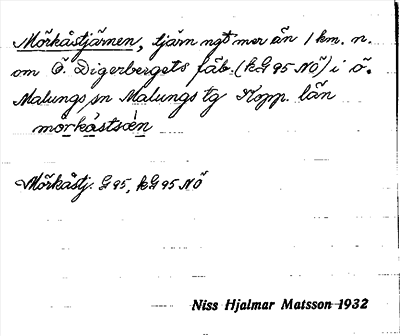 Mörkåstjärnen, tjärn ngt mer än 1 km. n.
om Ö. Digerbergets fäb. (kG 95 NÖ) i ö.
Malungs sn Malungs tg Kopp. län
mörkåstsæ̀n
Mörkåstj. G 95, kG 95 NÖ
Niss Hjalmar Matsson 1932